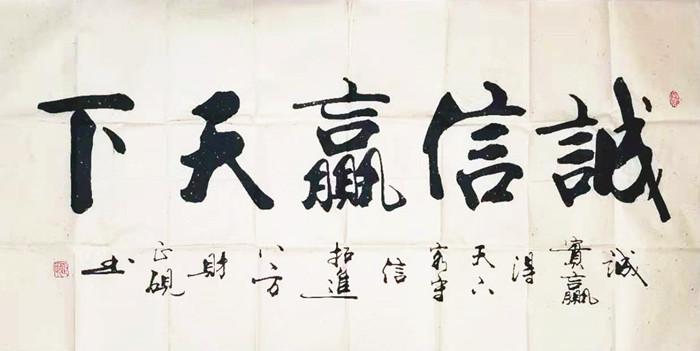 誠信贏天下
誠實贏得天下客守信拓進八方財正硯书